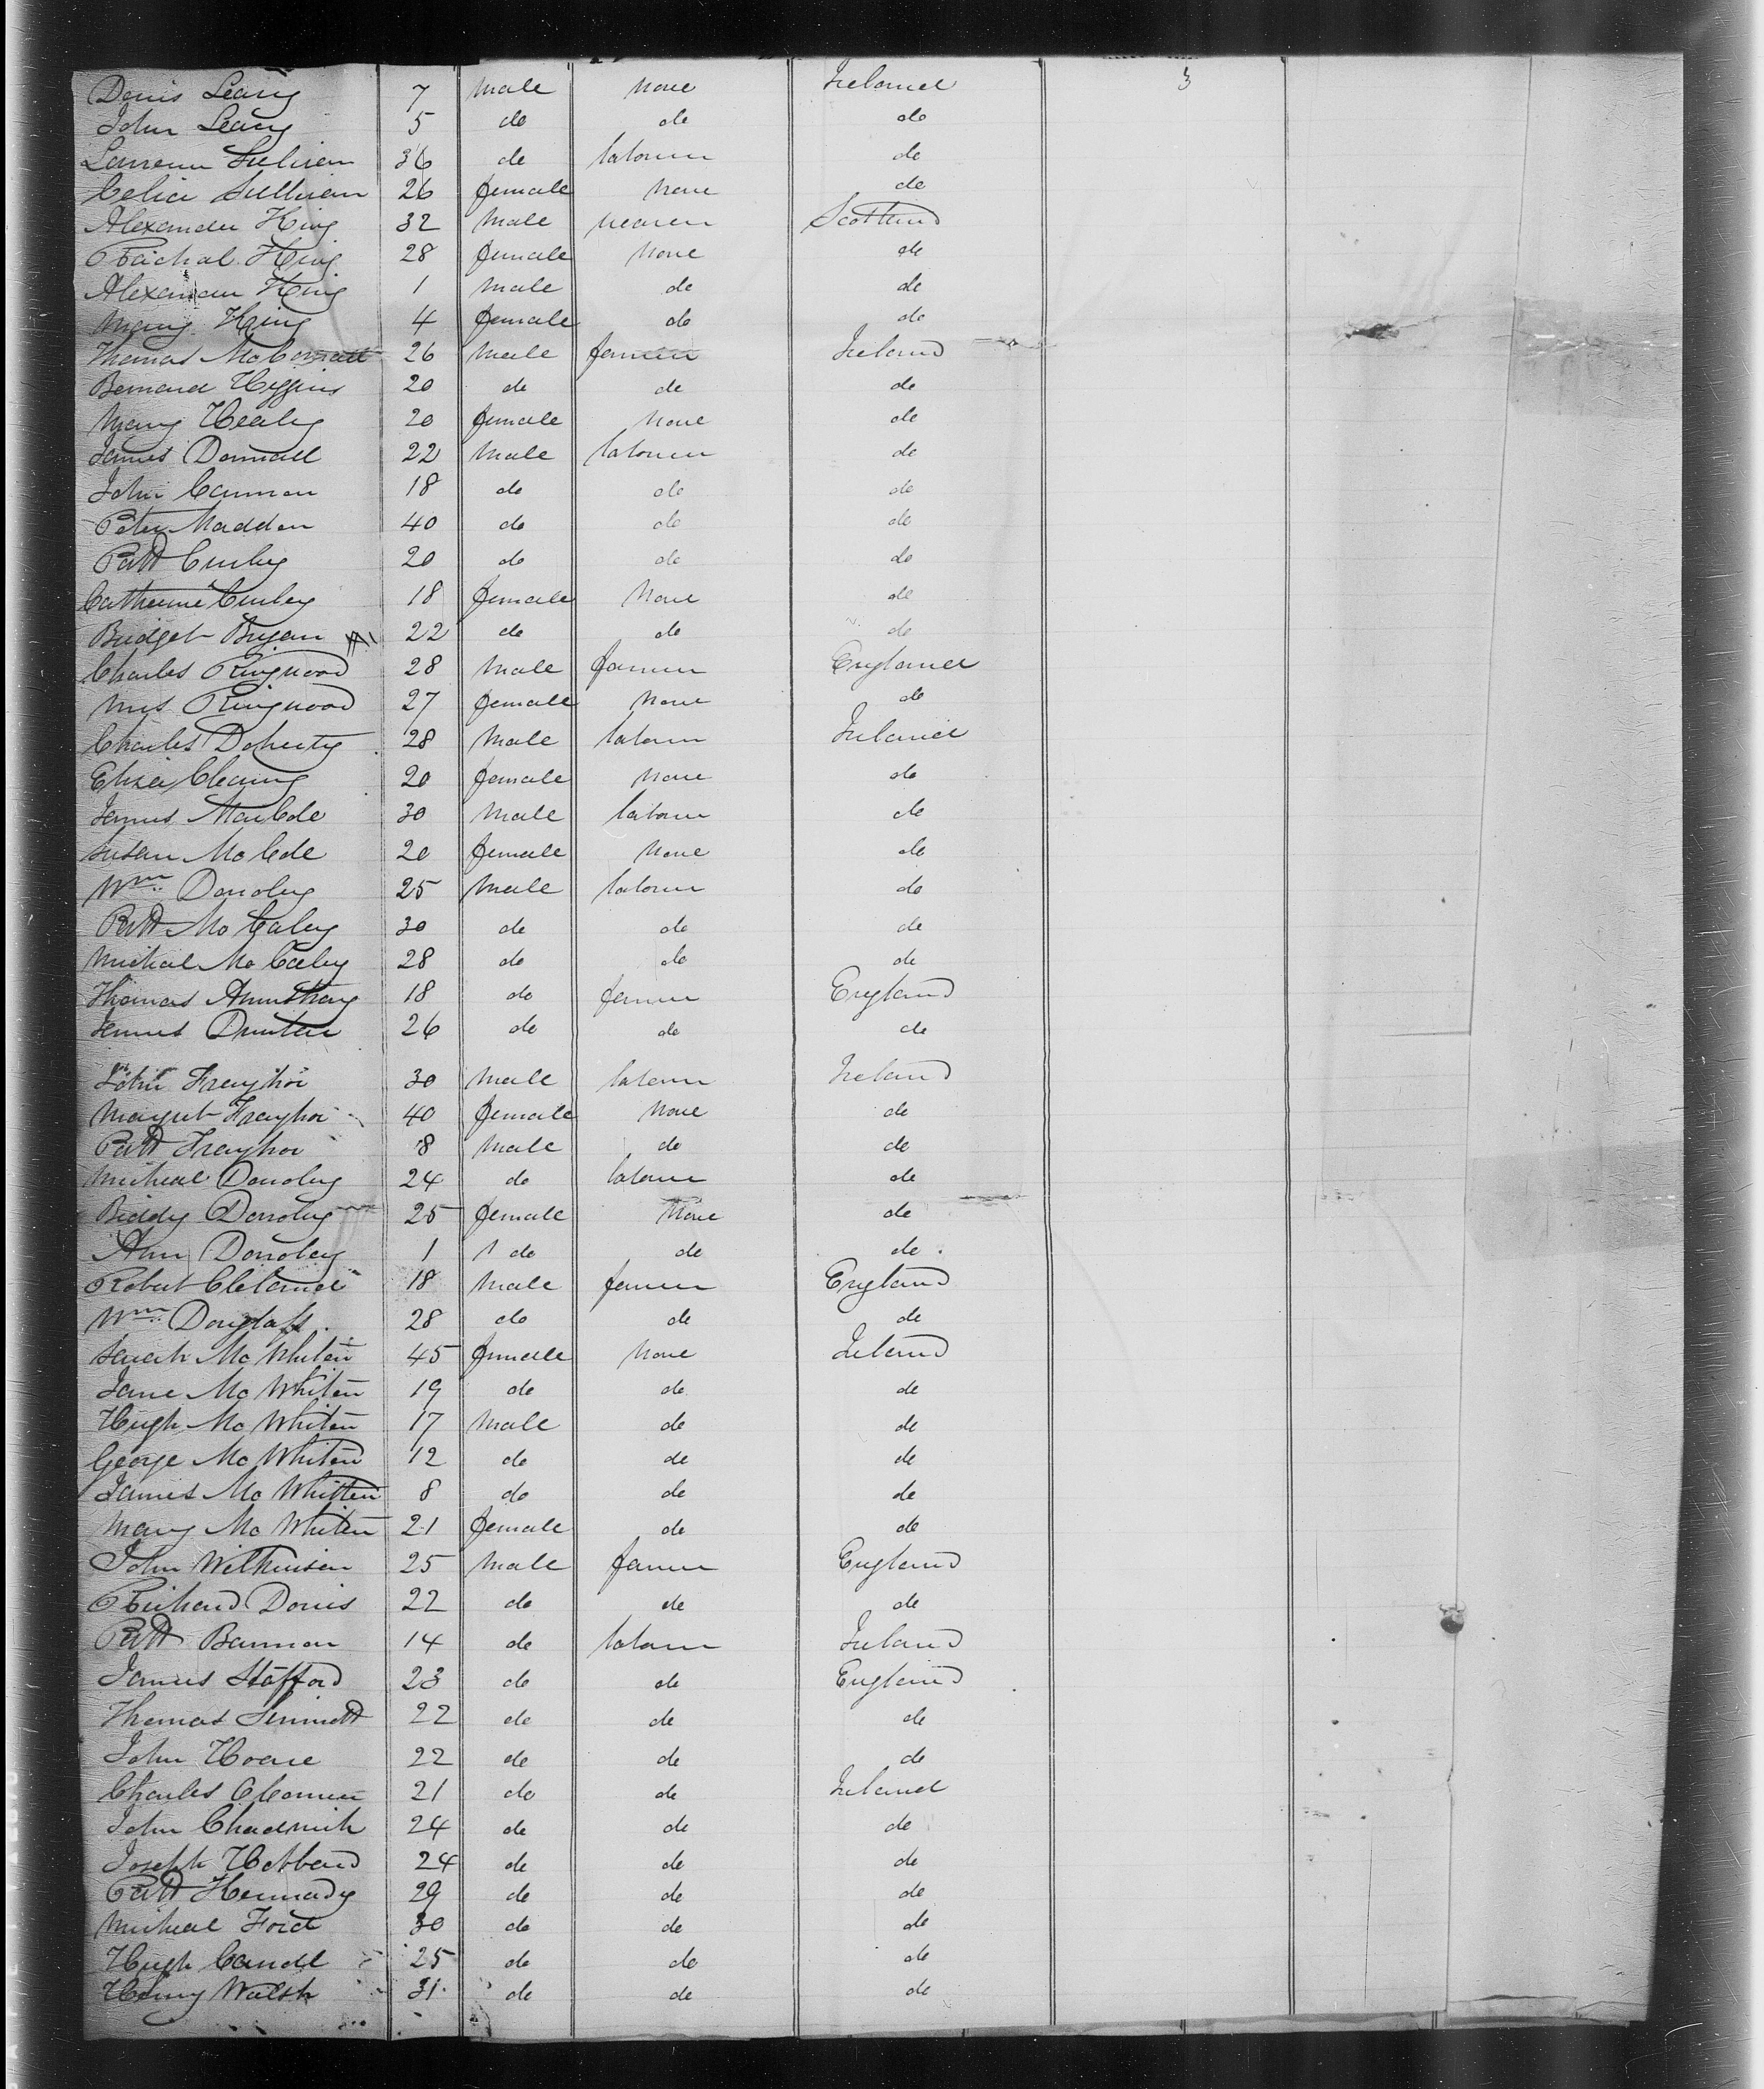 3
Denis Leary 7 Male None Ireland
John Leary 5 do do do
Lawrence Sulivan 36 do labourer do
Celia Sullivan 26 female None do
Alexander King 32 Male weaver Scotland
Rachal King 28 female None do
Alexander King 1 Male do do
Mary King 4 female do do
Thomas McCormatt 26 Male farmer Ireland
Bernard Higgins 20 do do do
Mary Healey 20 female None do
James Donnall 22 Male labourer do
John Cannon 18 do do do
Peter Madden 40 do do do
Patt Curley 20 do do do
Catherine Curley 18 female None do
Bridget Bryan 22 do do do
Charles Ringwood 28 Male farmer England
Mrs Ringwood 27 female None do
Charles Doherty 28 Male labourer Ireland
Eliza Cleary 20 female None do
James MacCole 30 Male labourer do
Susan McCole 20 female None do
Wm Donoley 25 Male labourer do
Patt McCaley 30 do do do
Micheal McCaley 28 do do do
Thomas Armstrong 18 do farmer England
James Dunter 26 do do do
John Frayhor 30 Male labourer Ireland
Margret Frayhor 40 female None do
Patt Frayhor 8 Male do do
Micheal Donoley 24 do labourer do
Biddy Donoley 25 female None do
Ann Donoley 1 do do do
Robert Cleland 18 Male farmer England
Wm Douglass 28 do do do
Sarah McWhiten 45 female None Ireland
Jane McWhiten 19 do do do
Hugh McWhiten 17 Male do do
George McWhiten 12 do do do
James McWhitten 8 do do do
Mary McWhiten 21 female do do
John Wilkinson 25 Male farmer England
Richard Doris 22 do do do
Patt Bannon 14 do labourer Ireland
James Stafford 23 do do England
Thomas Sinnett 22 do do do
John Hoare 22 do do do
Charles OConner 21 do do Ireland
John Chadwick 24 do do do
Joseph Hebbard 24 do do do
Patt Kennady 29 do do do
Micheal Ford 30 do do do
Hugh Caroll 25 do do do
Henry Walsh 31 do do do